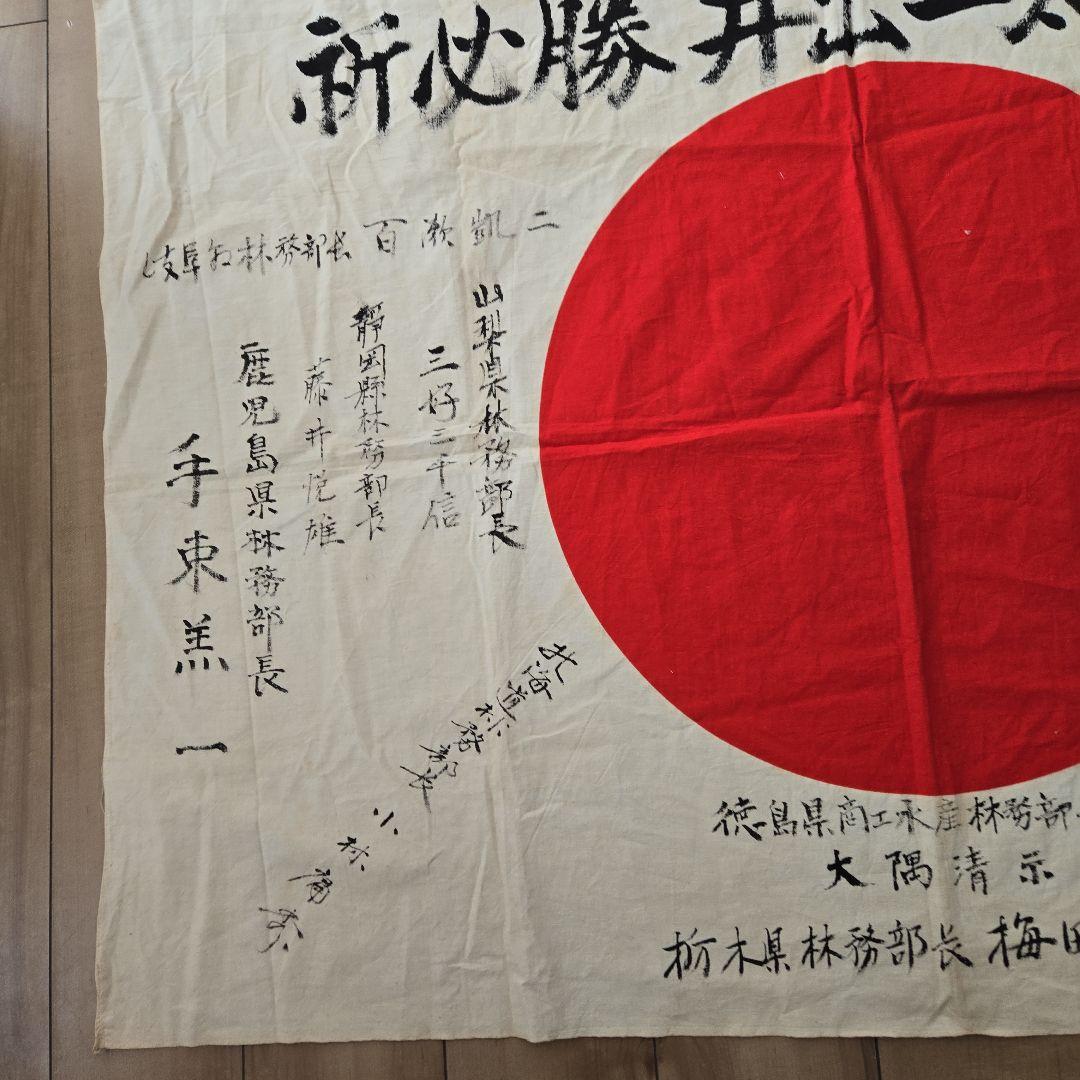 祈必勝 井出一太
岐阜県林務部長 百瀬凱二
山梨県林務部長
三好三千信
靜岡縣林務部長
藤井悦雄
鹿児島県林務部長
手束羔一
北海道林務部長
小林
徳島県商工水産林務部
大隅清示
栃木県林務部長 梅田